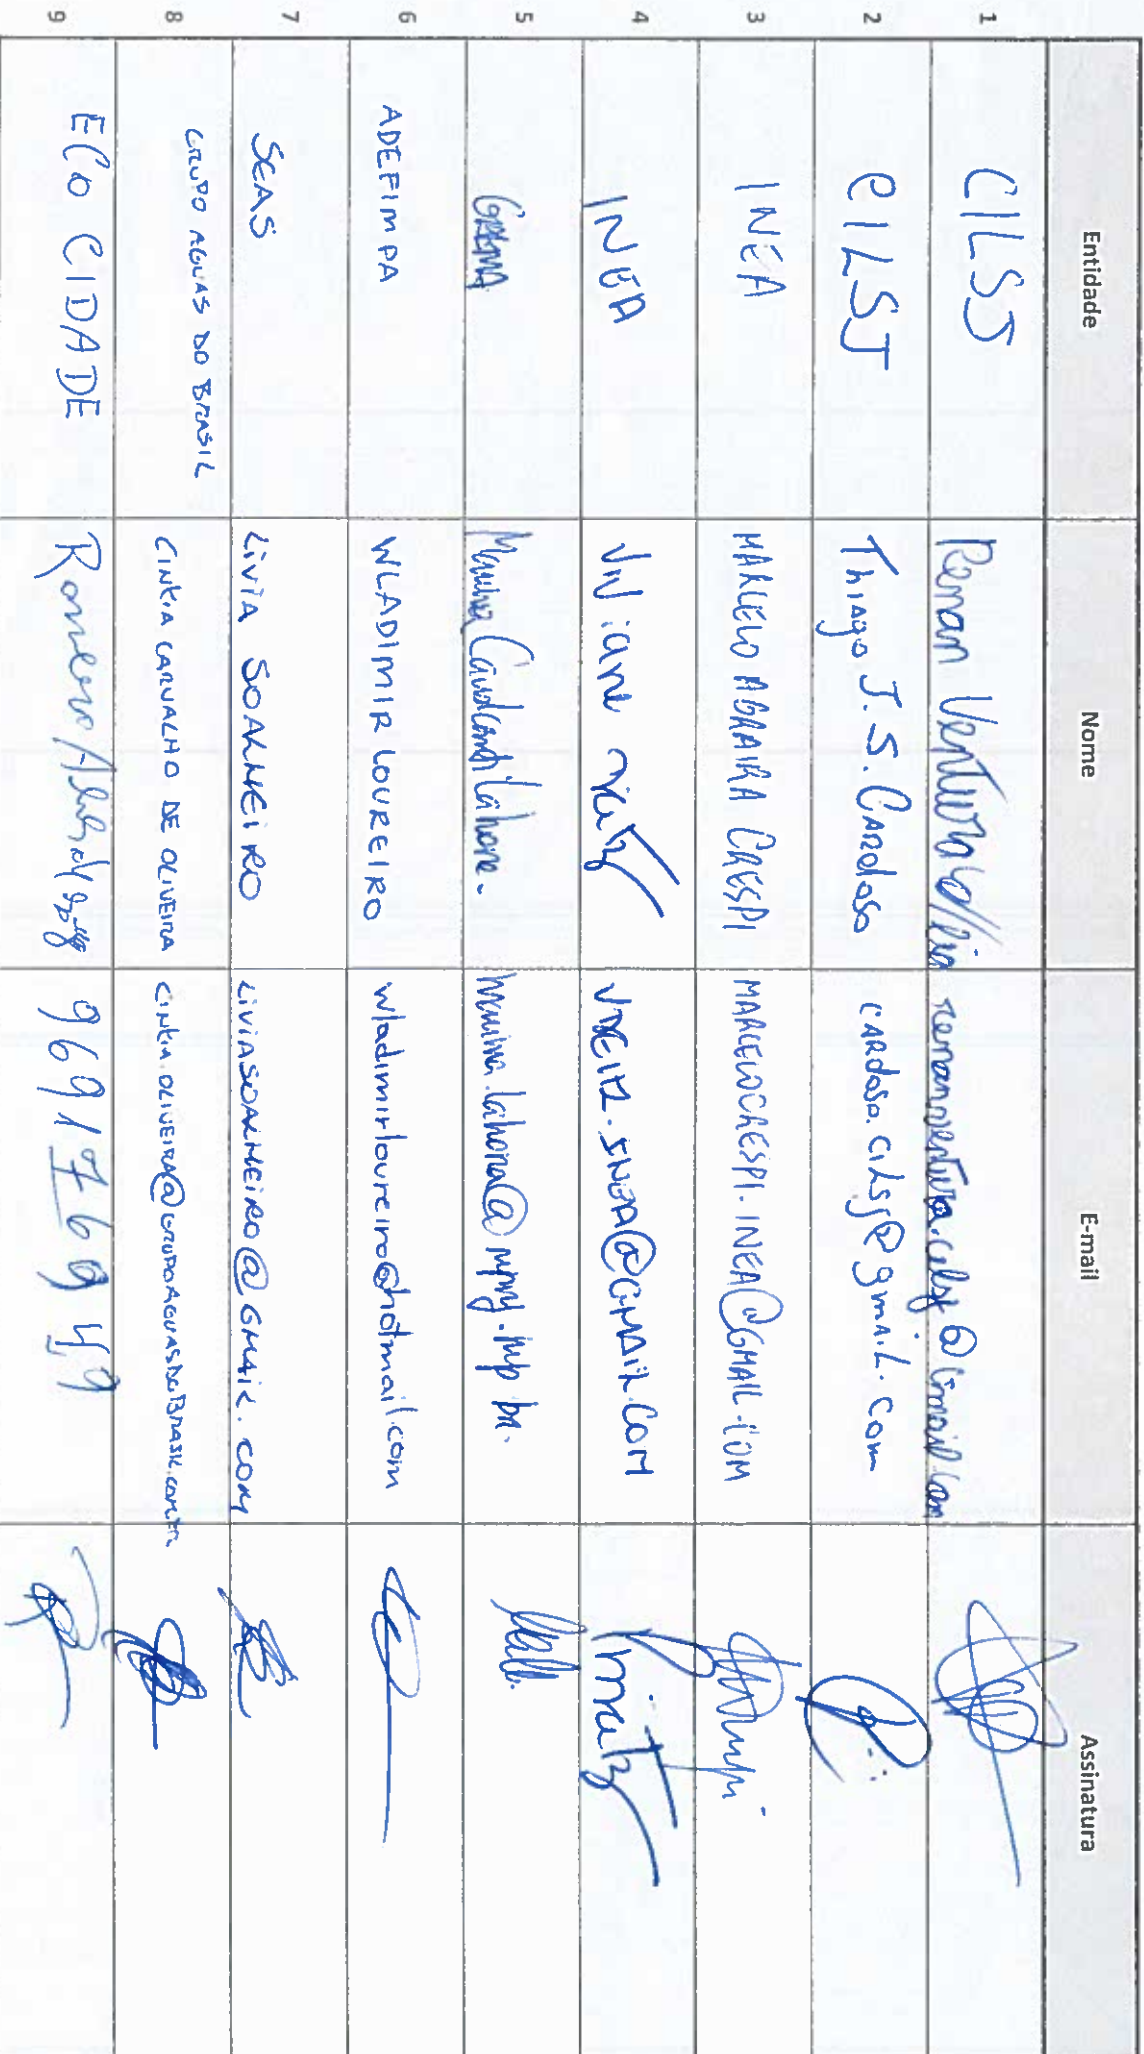 Entidade Nome E-mail Assinatura
1 CILSJ Renan Ventura renanventura.cilsj@gmail.com
2 CILSJ Thiago J. S. Cardoso cardoso.cilsj@gmail.com
3 INEA MARCELO ABRAIRA CRESPI MARCELOCRESPI.INEA@GMAIL.COM
4 INEA Viviane
5 Cavalcanti Lahore.
6 ADEFIMPA WLADIMIR LOUREIRO wladimirloureiro@hotmail.com
7 SEAS LIVIA SOALHEIRO LIVIASOALHEIRO@GMAIL.COM
8 GRUPO AGUAS DO BRASIL CINTIA CARVALHO DE OLIVEIRA CINTIA.OLIVEIRA@GRUPOAGUASDOBRASIL.COM.BR
9 ECO CIDADE Romero 969176949